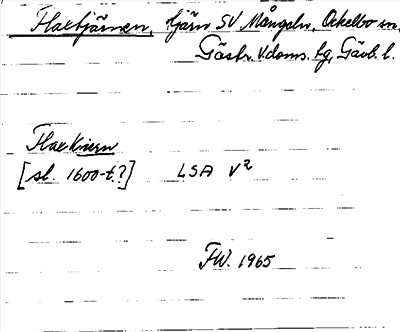 Flaxtjärnen, tjärn SV Mången, Ockelbo sn,
Gästr. v. doms. tg, Gävb. l.
Flaxtiern
[sl. 1600-t.?] LSA V2
FW. 1965